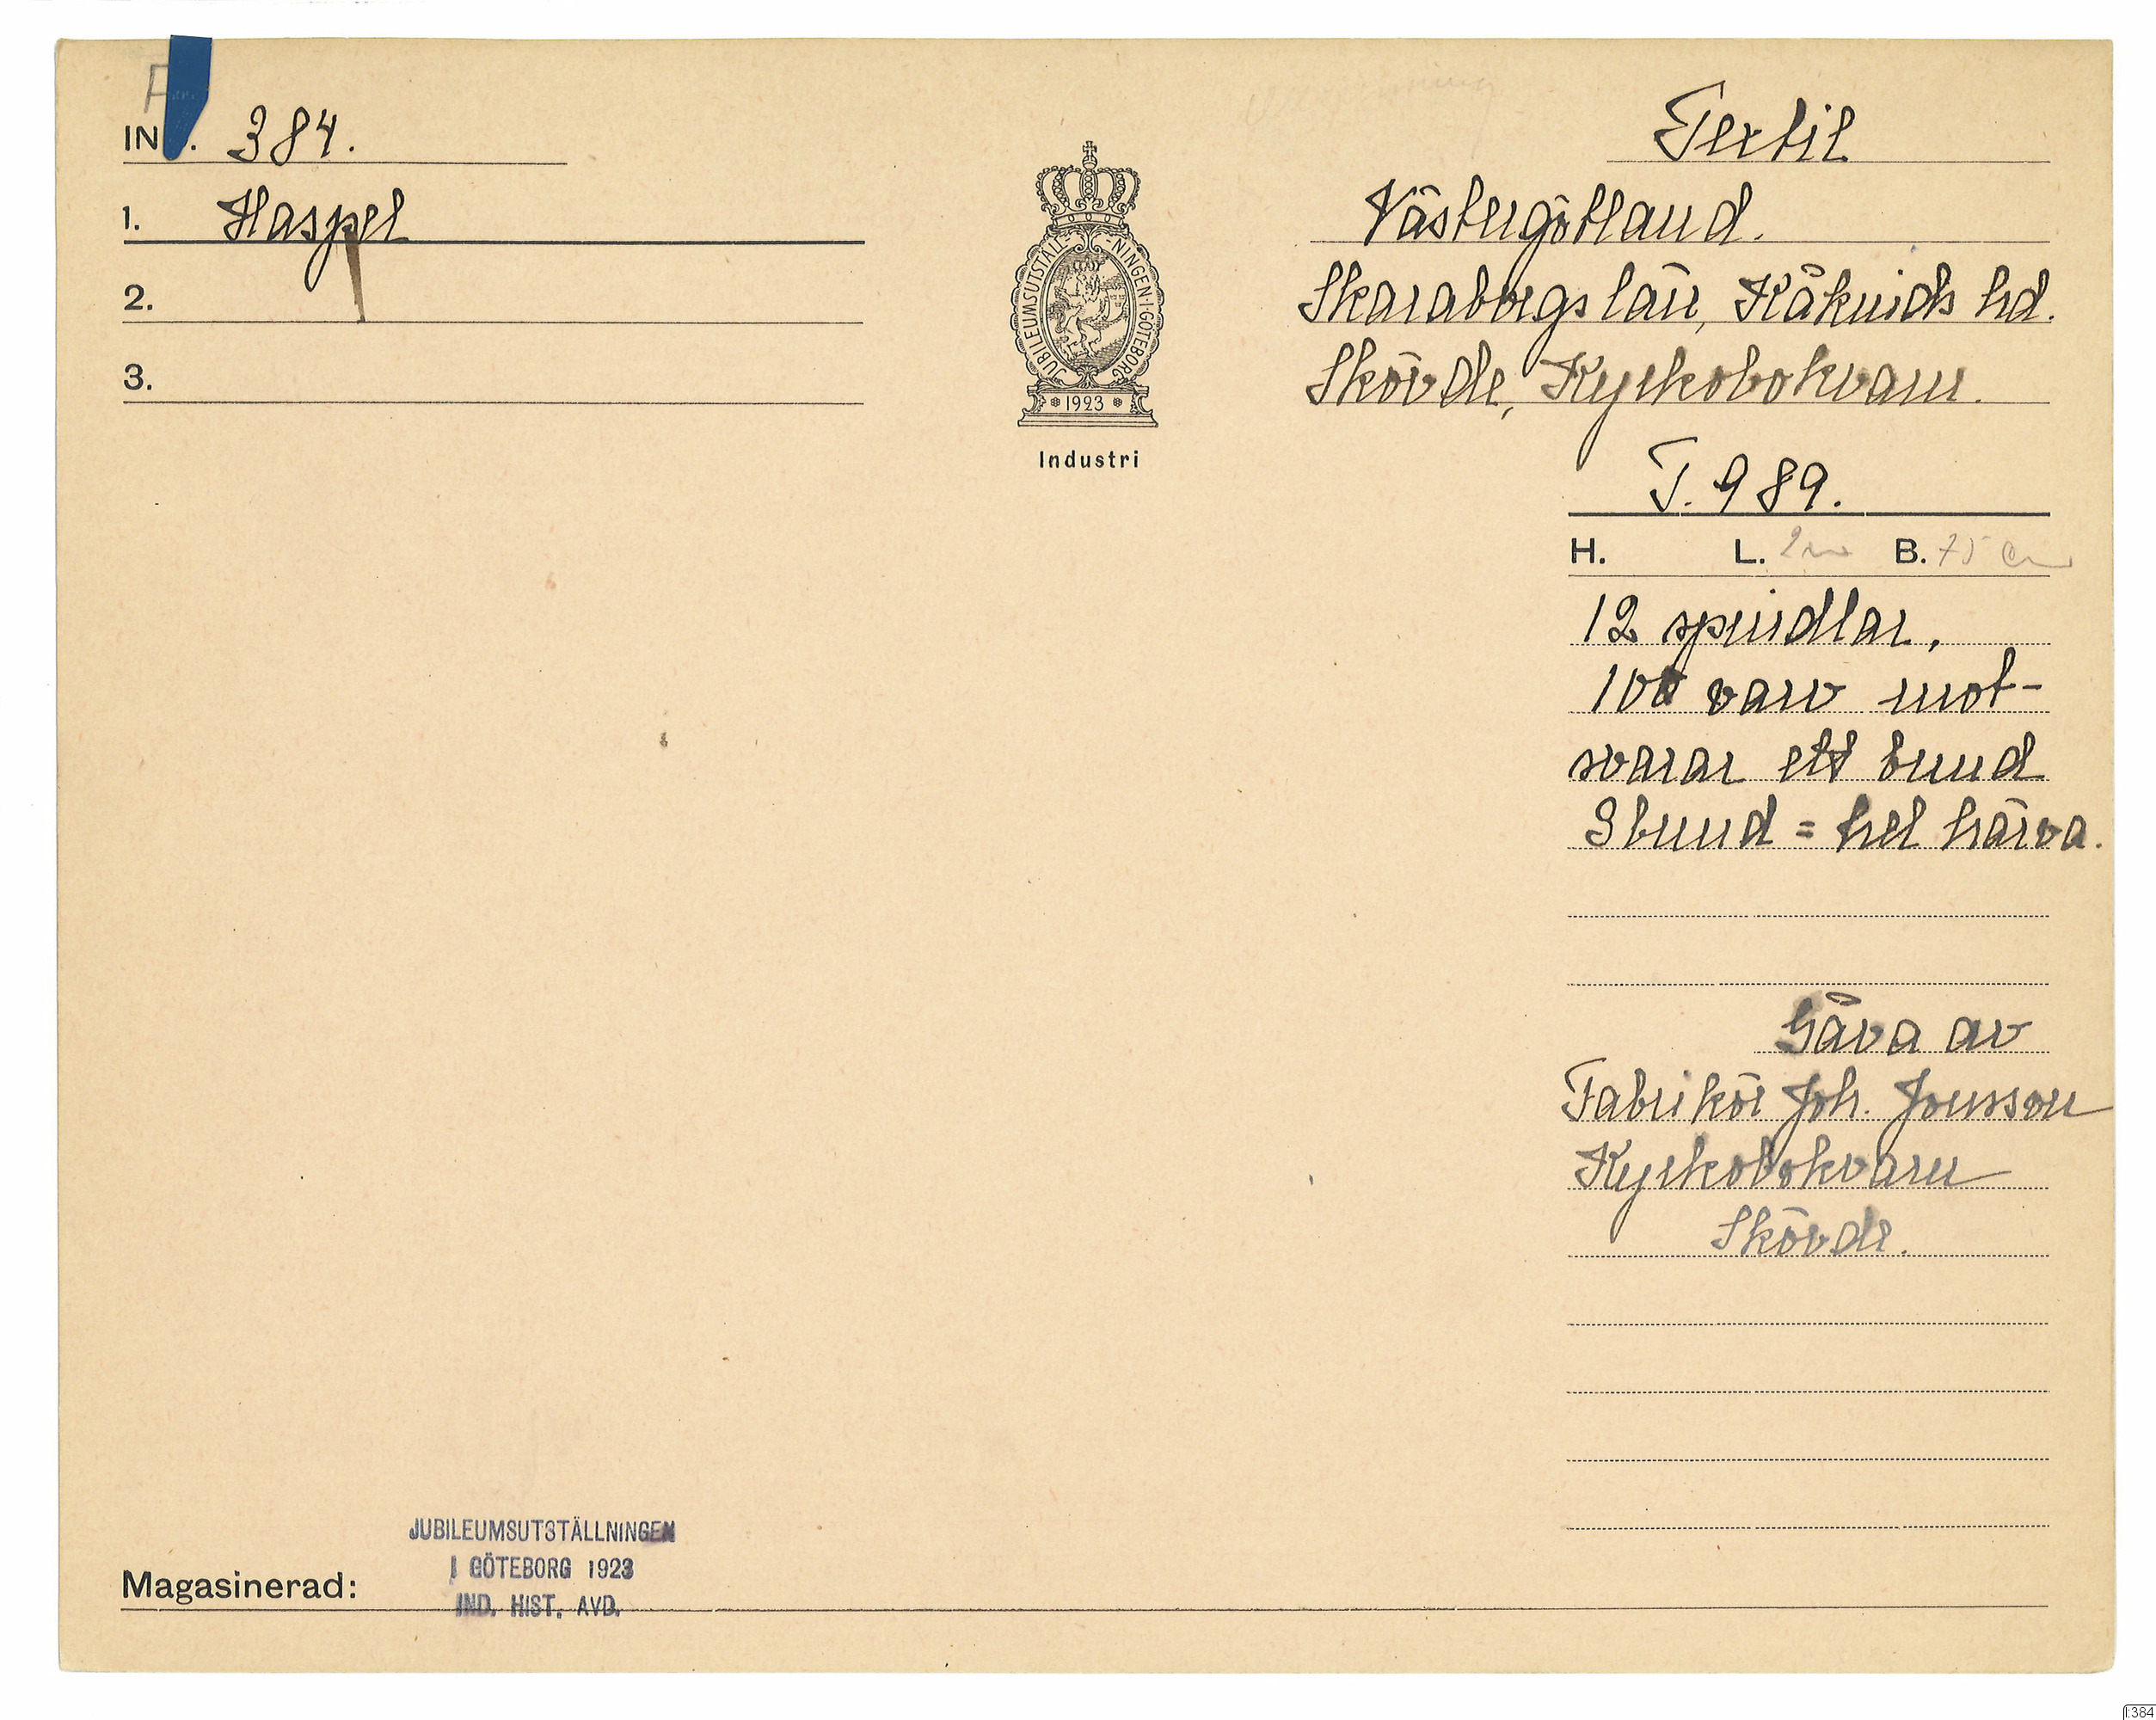 IN . 384.
1. Haspel
2.
3.
JUBILEUMSUTSTÄLLNINGEN I GÖTEBORG
1923
Industri
Textil
Västergötland.
Skaraborgs län, Kåkinds hd.
Skövde, Kyrkobokvarn.
T. 989.
H. L. 2 m B. 75 cm
12 spindlar.
100 varv mot-
svarar ett bund
9 bund = hel härva.
Gåva av
Fabrikör Joh. Jonsson
Kyrkobokvarn
Skövde.
Magasinerad:
JUBILEUMSUTSTÄLLNINGEN
I GÖTEBORG 1923
IND. HIST. AVD.
I:384